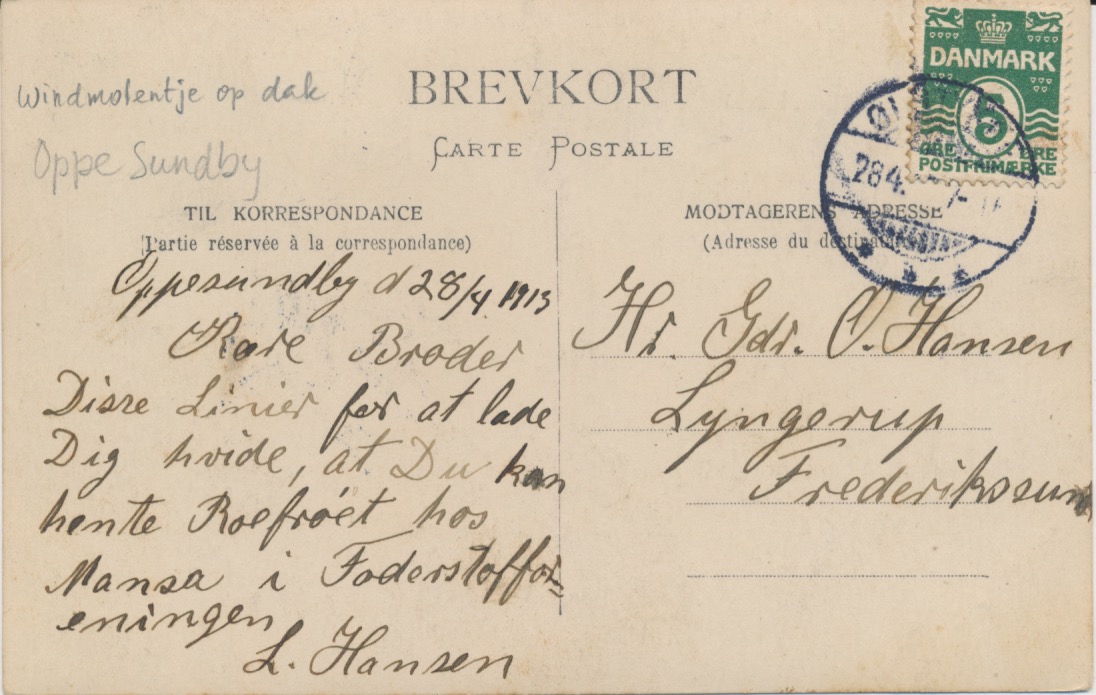 Windmolentje op dak
Oppe Sundby
BREVKORT
CARTE POSTALE
DANMARK
5
ØRE ØRE
POSTFRIMÆRKE
28 4.
TIL KORRESPONDANCE
(Partie réservée à la correspondance)
MODTAGERENS ADRESSE
(Adresse du destinataire)
Oppesundby d 28/4 1913
Kære Broder
Disse Linier for at lade
Dig hvide, at Du kan
hente Roefrøet hos
Mansa i Foderstoffor=
eningen
L. Hansen
Hr. Gdr. O. Hansen
Lyngerup
Frederikssund